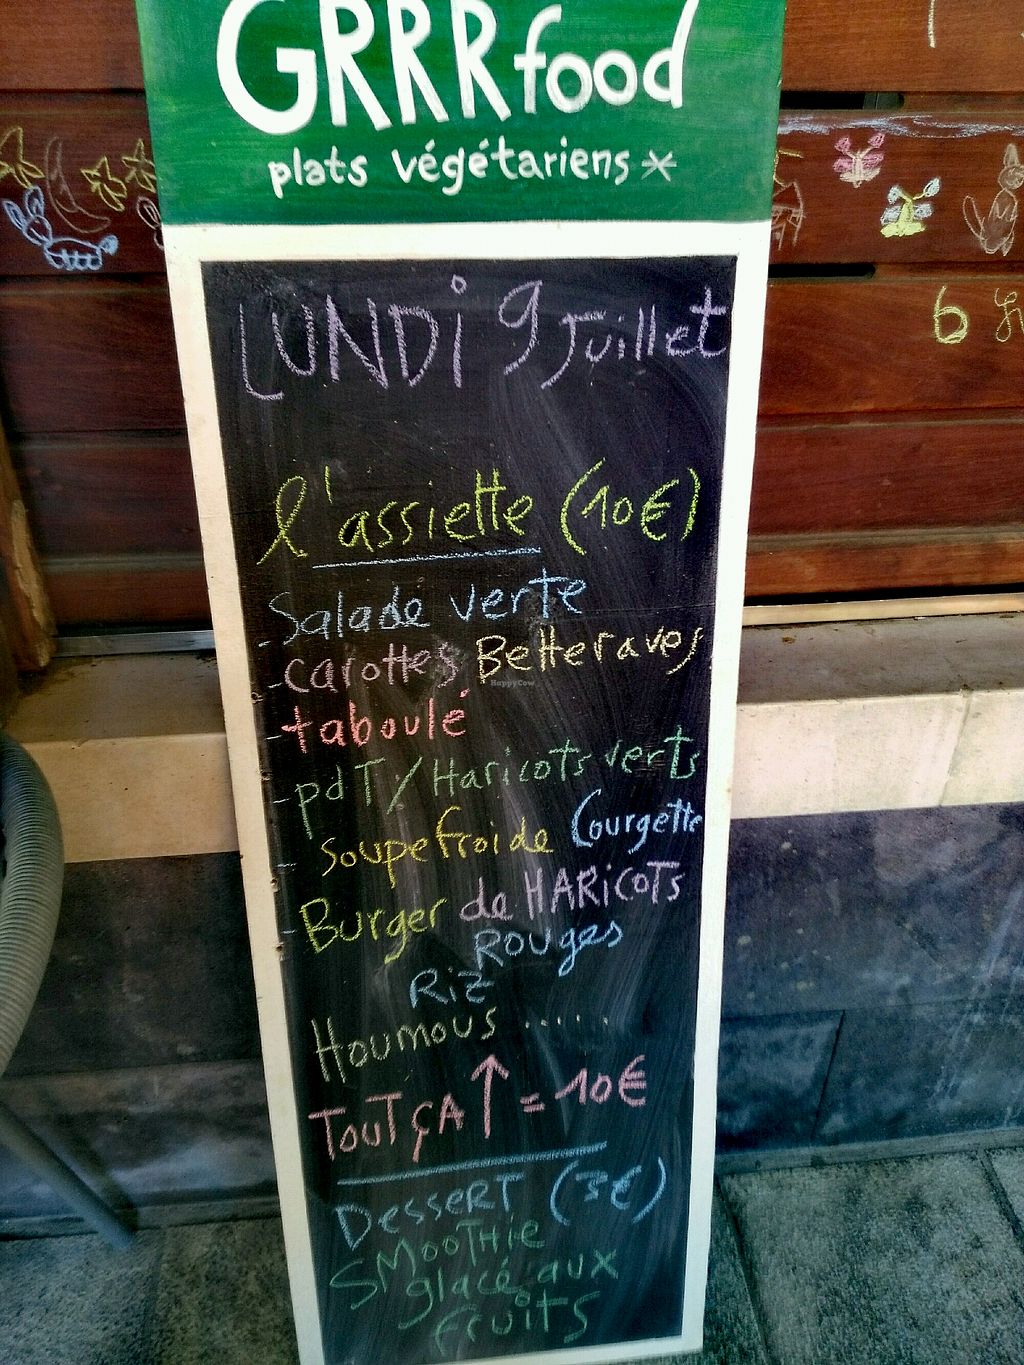 GRRRfood
plats végétariens*
LUNDi 9 Juillet
l'assiette (10€)
- Salade verte
- carottes Betteraves
- taboulé
- pdT / Haricots verts
- soupe froide Courgette
- Burger de HARiCOTS
ROUGES
Riz
HOUMOUS .....
TOUT ÇA ↑ = 10€
DESSERT (3€)
SMOOTHIE
glacé aux
fruits
6
HappyCow